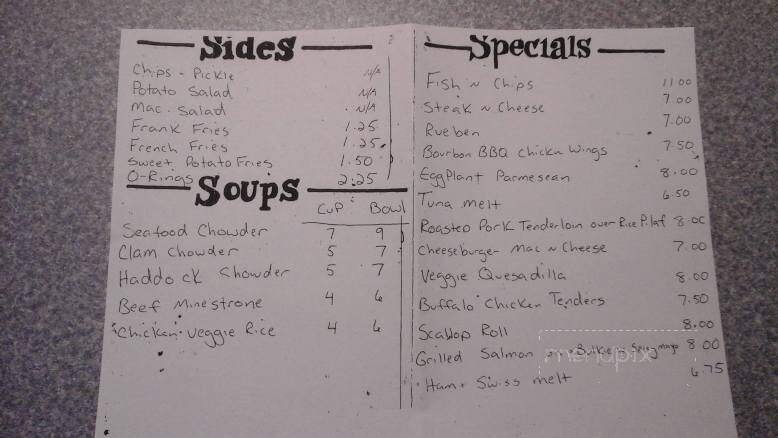 Sides
Chips - Pickle N/A
Potato Salad N/A
Mac. Salad N/A
Frank Fries 1.25
French Fries 1.25
Sweet Potato Fries 1.50
O-Rings 2.25
Soups
Cup Bowl
Seafood Chowder 7 9
Clam Chowder 5 7
Haddock Chowder 5 7
Beef Minestrone 4 6
Chicken Veggie Rice 4 6
Specials
Fish n Chips 11.00
Steak n Cheese 7.00
Rueben 7.00
Bourbon BBQ Chickn Wings 7.50
EggPlant Parmesean 8.00
Tuna melt 6.50
Roasted Pork Tenderloin over Rice Pilaf 8.00
Cheeseburger Mac n Cheese 7.00
Veggie Quesadilla 8.00
Buffalo Chicken Tenders 7.50
Scallop Roll 8.00
Grilled Salmon Spicy mayo 8.00
Ham + Swiss melt 6.75
menupix